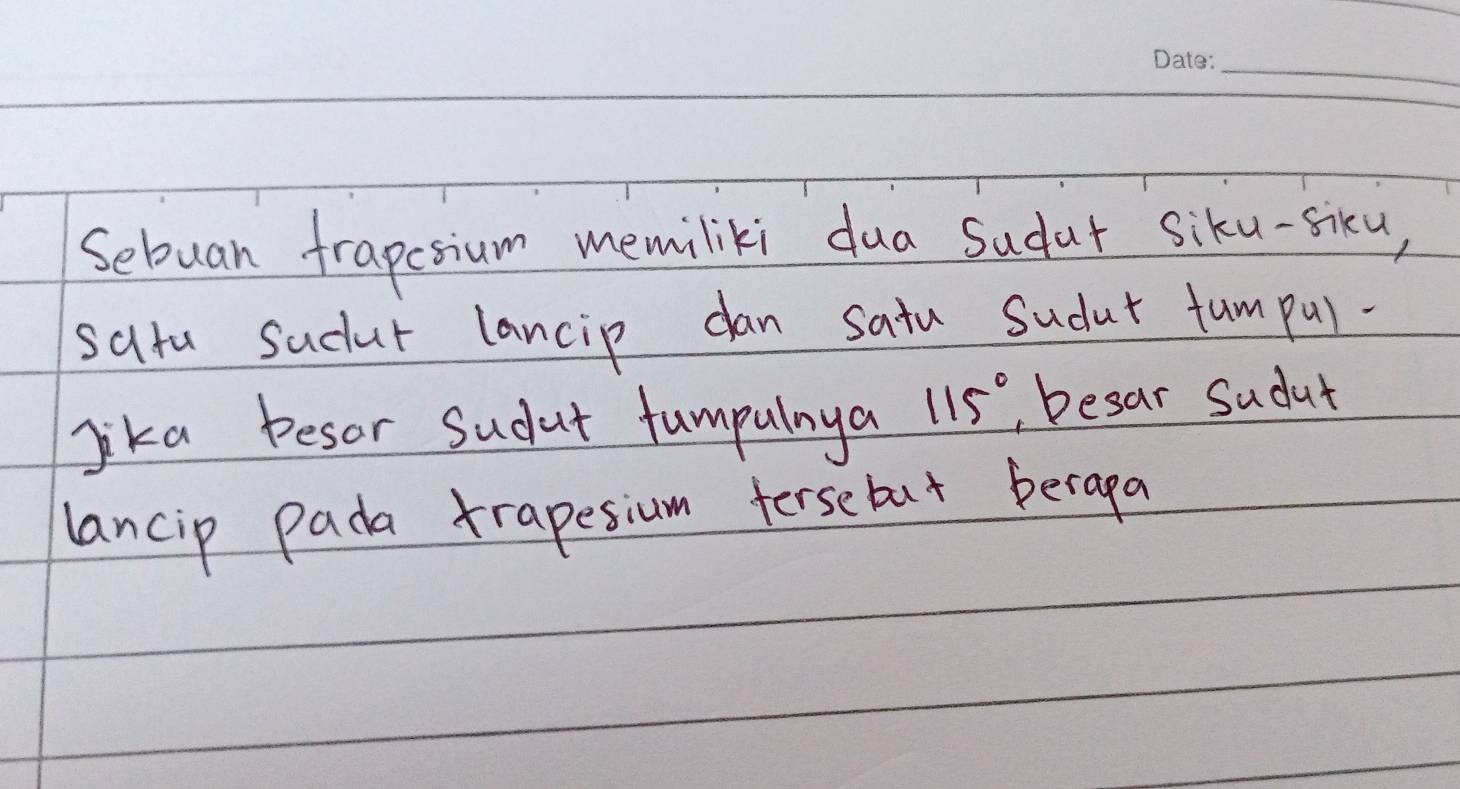 Date:
Sebuah trapesium memiliki dua sudut siku-siku,
satu sudut lancip dan satu sudut tumpul.
Jika besar sudut tumpulnya 115°, besar sudut
lancip pada trapesium tersebut berapa